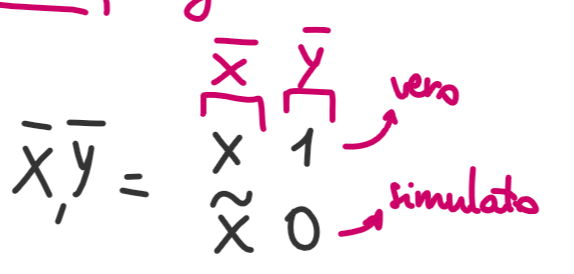 x̅ y̅
x̅, y̅ = x 1 → vero
x̃ 0 → simulato